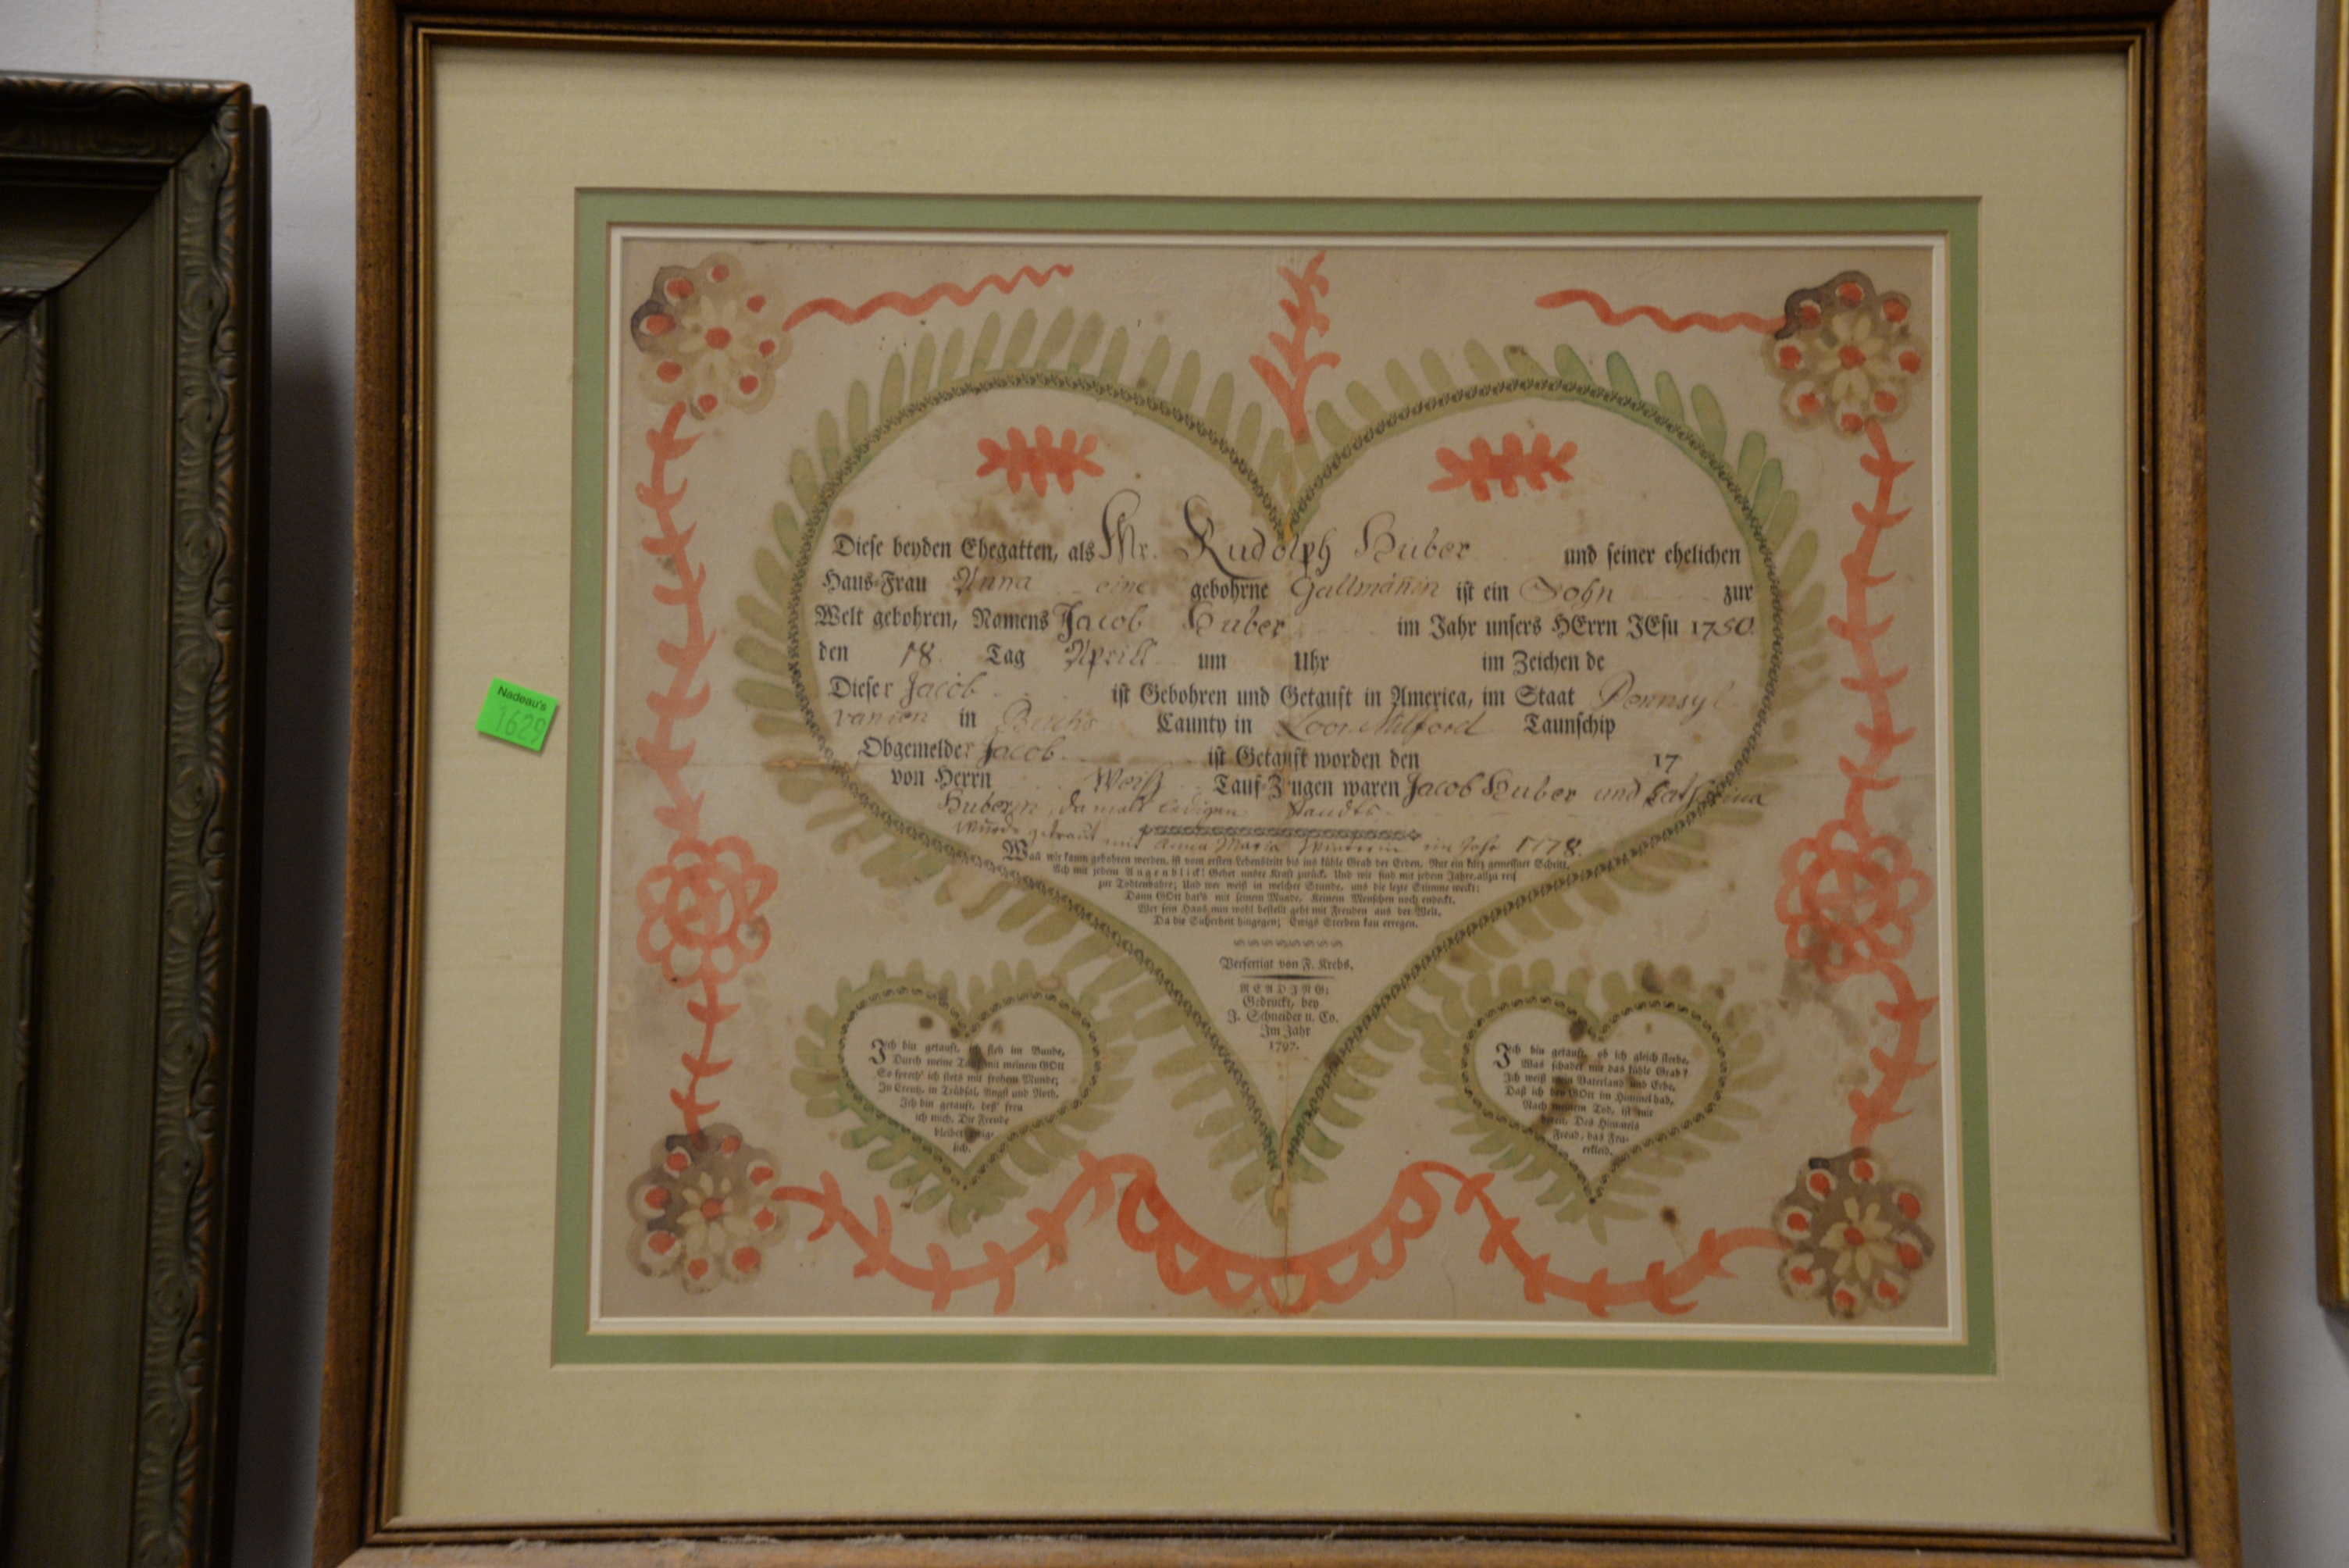 Nadeau's
1629
Diese beyden Ehegatten, als Mr. Rudolph Huber und seiner ehelichen
Haus-Frau Anna eine gebohrne Gallmänin ist ein Sohn zur
Welt gebohren, Namens Jacob Huber im Jahr unsers HErrn JEsu 1750.
den 18. Tag Aprill um Uhr im Zeichen de
Dieser Jacob ist Gebohren und Getauft in America, im Staat Pennsyl
vanien in Bucks Caunty in Loor Milford Taunschip
Obgemelder Jacob ist Getauft worden den 17
von Herrn Weiß Tauf-Zeugen waren Jacob Huber und Catharina
Huberin, damals ledigen Standts
Wurde getraut mit Anna Maria im Jahr 1778.
Wann wir kaum gebohren werden, ist vom ersten Lebenstritt bis ins kühle Grab der Erden, Nur ein kurz gemeßner Schritt.
Ach mit jedem Augenblick! Gehet unsre Kraft zurück, Und wir sind mit jedem Jahre, allzu reif
zur Todtenbahre; Und wer weiß in welcher Stunde, uns die lezte Stimme weckt;
Dann GOtt hat's mit seinem Munde, Keinem Menschen noch endeckt.
Wer sein Haus nun wohl bestellt geht mit Freuden aus der Welt,
Da die Sicherheit hingegen; Ewigs Sterben kan erregen.
Verfertigt von F. Krebs.
READING:
Gedruckt, bey
J. Schneider u. Co.
Im Jahr
1797.
Ich bin getauft, ich steh im Bunde,
Durch meine Tauf mit meinem GOtt
So sprech' ich stets mit frohem Munde;
In Creutz, in Trübsal, Angst und Noth,
Ich bin getauft, deß' freu
ich mich, Die Freude
bleibet ewig-
lich.
Ich bin getauft, ob ich gleich sterbe,
Was schadet mir das kühle Grab?
Ich weiß mein Vaterland und Erbe,
Daß ich bey GOtt im Himmel hab,
Nach meinem Tod, ist mir
bereit, Des Himmels
Freud, das Fey-
erkleid.